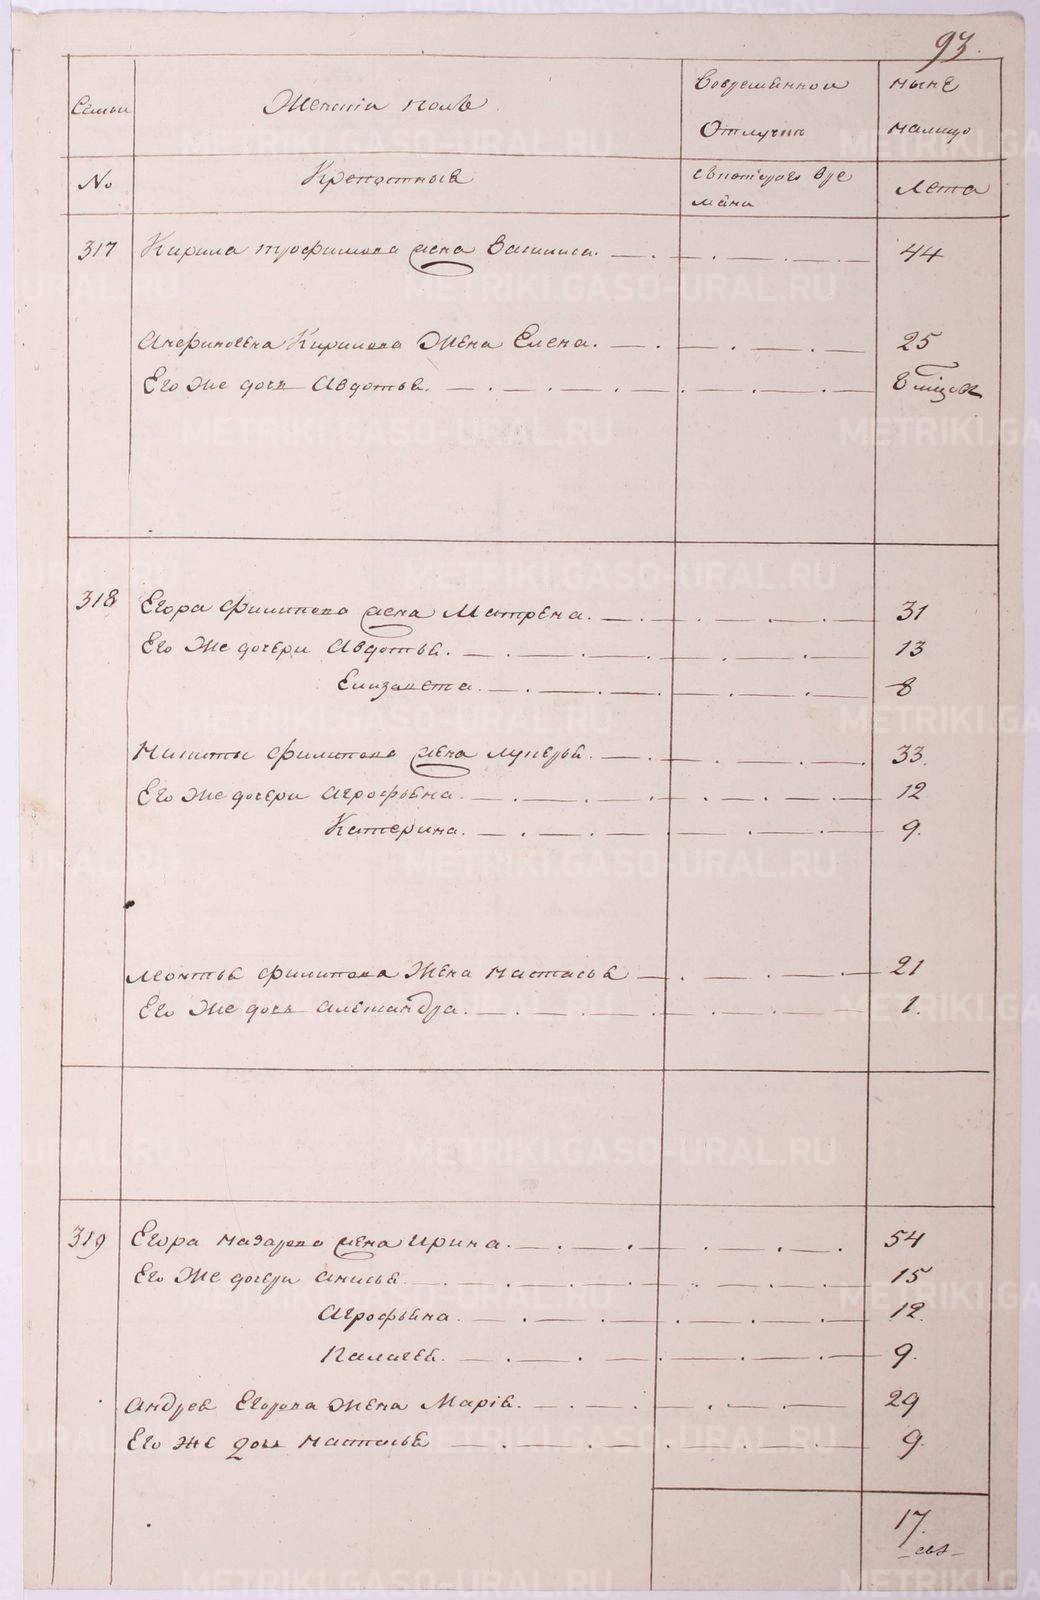 93.
Семьи
Женскiй полъ
Вовременной
Отлучки
ныне
налицо
№
Крепостные
Лета
317 Кирила трофимова жена Василиса. 44
Кирилова Жена Елена. 25
Его Же дочь Авдотья. 8
318 Егора филипова жена Матрена. 31
Его Же дочери Авдотья. 13
Елизавета. 8
Никиты филипова жена лукерья. 33.
Его Же дочери Агрофьена. 12
Катерина. 9.
леонтья филипова Жена настасья 21
Его Же дочь александра. 1.
319 Егора назарова жена ирина. 54
Его Же дочери анисья. 15
Агрофьена. 12.
Палагея. 9.
андрея Егорова жена Марiя. 29
Его же дочь настасья 9.
17.
METRIKI.GASO-URAL.RU